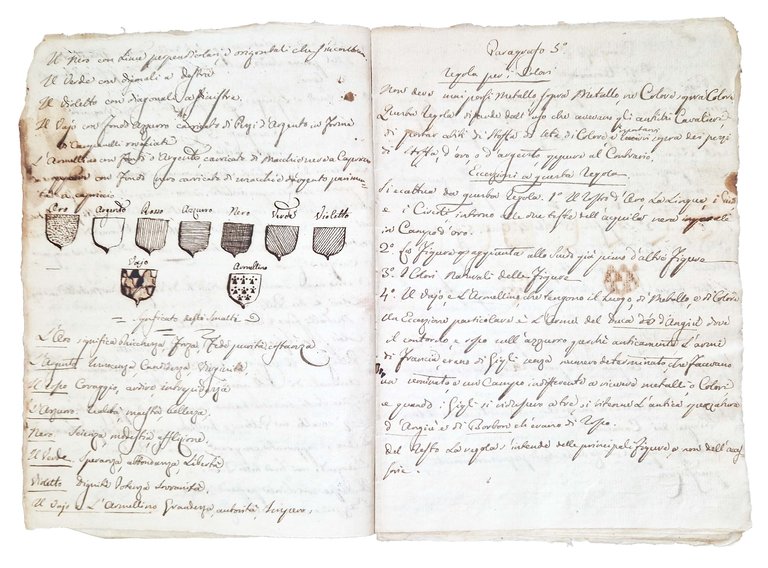 Il Nero con Linee perpendicolari, e orizontali che s'incrociano
Il Verde con diagonali a Destra
Il Violetto con diagonale a sinistra
Il Vajo con fondo Azzurro caricato di Pezzi d'Argento in forma
di Campanelli rovesciate
L'Armellino con fondo d'Argento carricato di Macchie nere a Capriccio
con fondo nero caricato di macchie d'Argento
a capriccio
Oro Argento Rosso Azzurro Nero Verde Violetto
Vajo Armellino
Significato dessi Smalti
L'Oro significa ricchezza, forza, fede, purità, costanza
L'Argento Innocenza Candidezza Virginità
Il Rosso Coraggio, ardire intrepidezza
L'Azzurro. Lealtà, maestà bellezza,
Nero. Scienza, modestia afflizione.
Il Verde Speranza, abbondanza Libertà
Violetto Dignità Potenza Sovranità,
Il Vajo e L'Armellino Grandezza, autorità, Impero,
Paragrafo 5°.
Regola per i Colori
Non deve mai porsi Metallo sopra Metallo nè Colore sopra Colore
Questa Regola discende dall'uso che avevano gli antichi Cavalieri
di portar abiti di Stoffa di seta di Colore e sopra dei pezzi
di Stoffa d'oro o d'argento oppure al Contrario.
Eccezioni a questa Regola
Si eccettua da questa Regola. 1° Il Rostro d'Oro La Lingua, i
e i Circoli intorno alle due teste dell'aquila nera imperiale
in Campo d'oro.
2° La Figura aggiunta allo Scudo già pieno d'altre Figure
3° I Colori Naturali delle Figure
4° Il Vajo, e L'Armellino che tengono il Luogo di Metallo e di Colore
Un Eccezione particolare è L'Arme del Duca d'Angiò dove
il contorno è rosso sull'azzurro perchè anticamente L'arme
di Francia erano di Gigli senza numero determinato che facevano
un e un Campo indifferente a ricevere metalli o Colori
e quando i Gigli si ridussero a tre, si ritenne L'antica
d'Angiò e di Borbon ch'erano di Rosso.
Del Resto La regola s'intende delle principali Figure e non dell'acces
sorie.